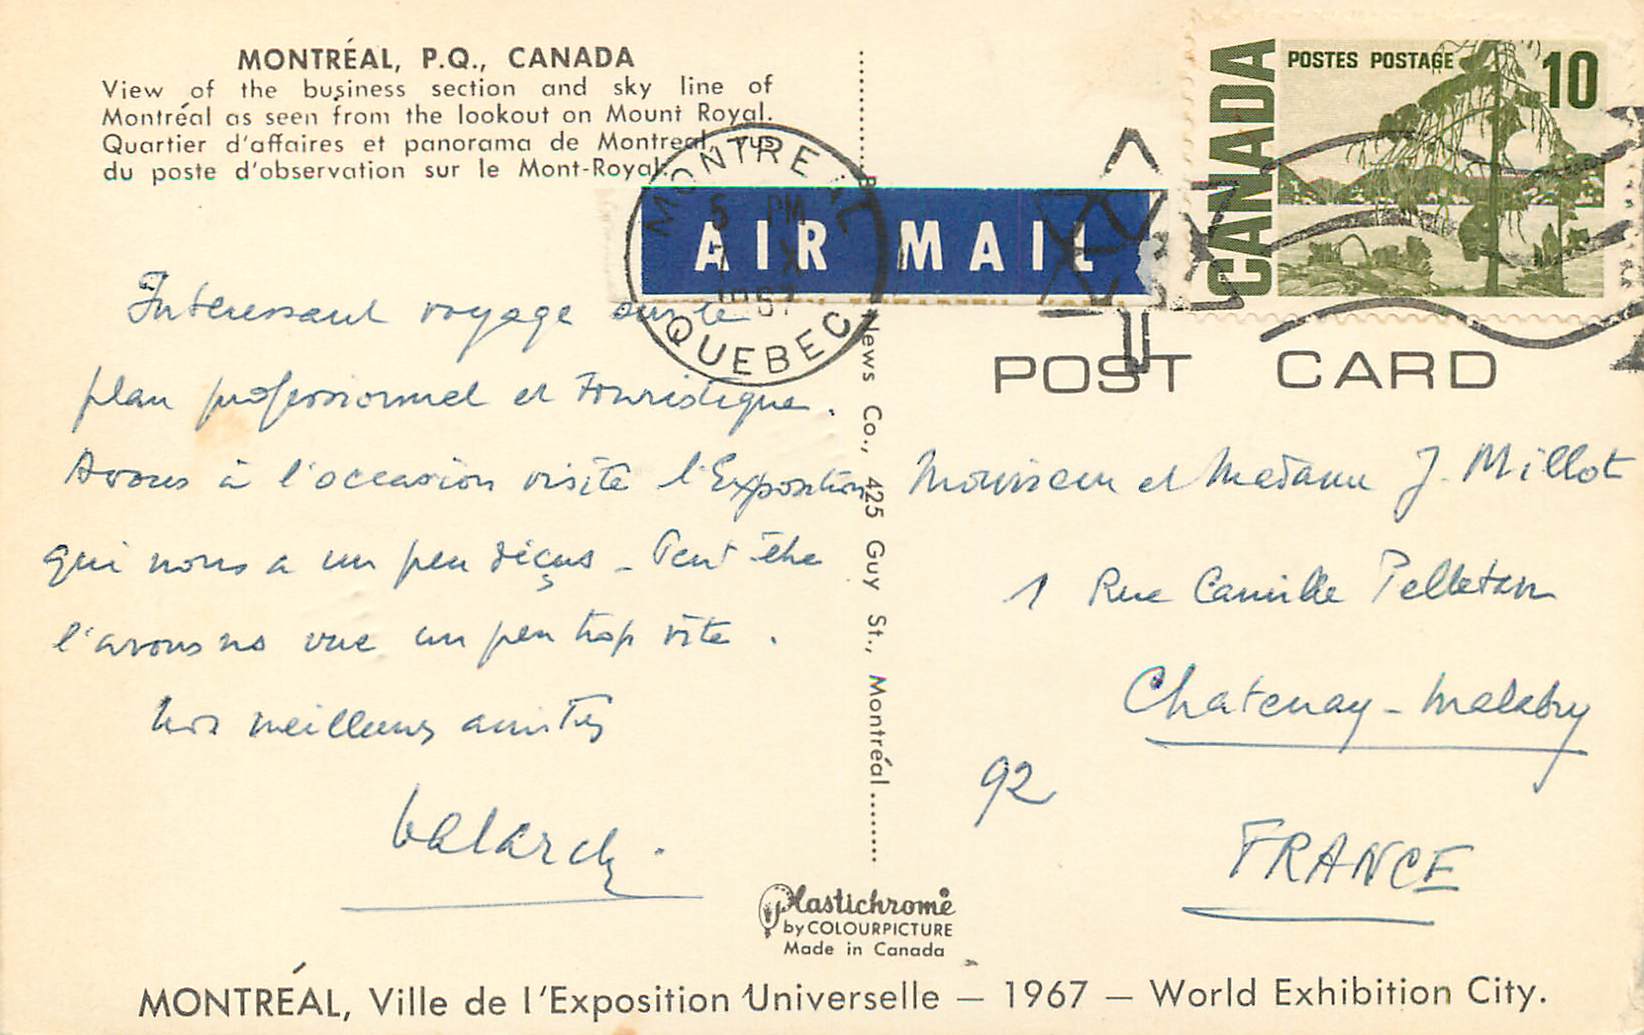 MONTRÉAL, P.Q., CANADA
View of the business section and sky line of
Montréal as seen from the lookout on Mount Royal.
Quartier d'affaires et panorama de Montreal, vus
du poste d'observation sur le Mont-Royal.
Interessant voyage sur le
plan professionnel et touristique.
Avons à l'occasion visité l'Exposition
qui nous a un peu déçus - Peut être
l'avons ns vue un peu trop vite.
Nos meilleures amitiés
MONTREAL
5 PM
X
1967
QUEBEC
AIR MAIL
CANADA
POSTES POSTAGE
10
POST CARD
News Co., 425 Guy St., Montréal
Monsieur et Madame J. Millot
1 Rue Camille Pelletan
Chatenay-Malabry
92
FRANCE
Plastichrome
by COLOURPICTURE
Made in Canada
MONTRÉAL, Ville de l'Exposition Universelle — 1967 — World Exhibition City.